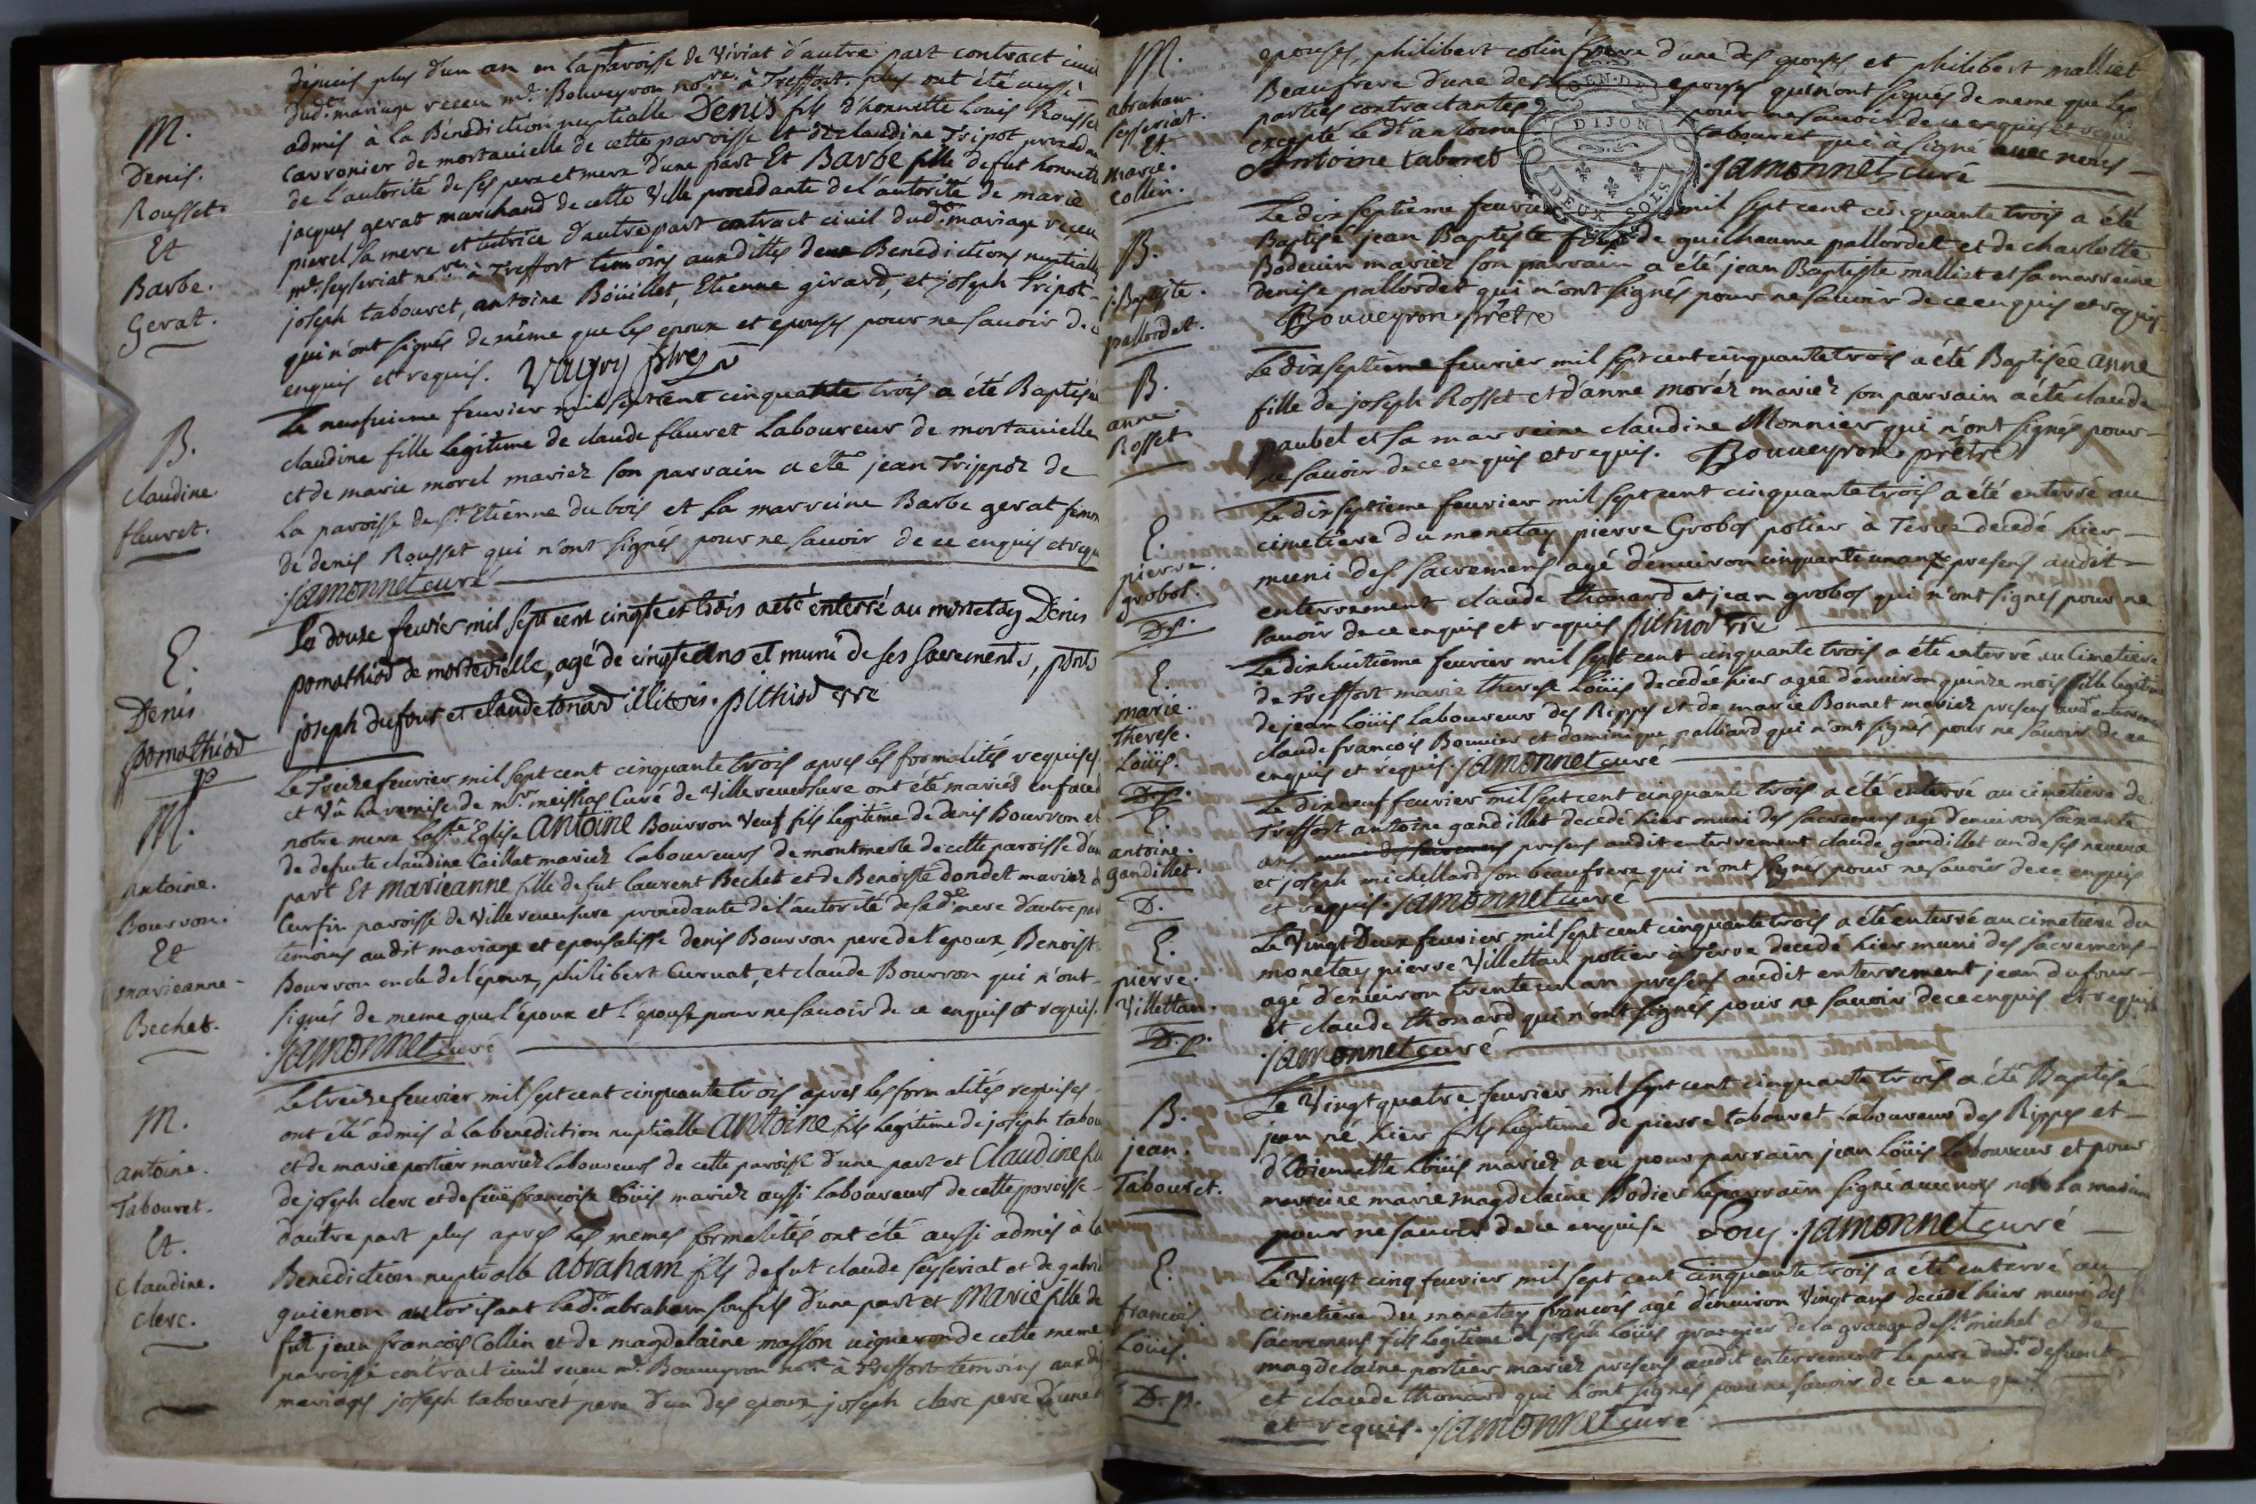 depuis plus d'un an en la paroisse de Viriat d'autre part contract civil
dudt. mariage receu mr. Bouveyron nore. à Treffort. plus ont été aussi
M.
admis à la Bénédiction nuptialle Denis fils d'honnette Louis Rousset
Denis.
de mortavielle de cette paroisse et de claudine Tripot procedant
Rousset.
de l'autorité de ses pere et mere d'une part Et Barbe fille de fut honnette
Et
jacques gerat marchand de cette Ville procedante de l'autorité de marie
Barbe.
pierel sa mere et tutrice d'autre part contract civil dudt. mariage receu
Gerat.
mr. seyseriat nore. à Treffort temoins auxdittes deux Benedictions nuptialles
joseph tabouret, antoine Böüillet, Etienne girard, et joseph Tripot
qui n'ont signés de même que les epoux et epouses pour ne savoir de ce
enquis et requis. Vaugry
Le neufvieme fevrier mil sept cent cinquante trois a été Baptisée
B.
claudine fille legitime de claude fleuret Laboureur de mortavielle
claudine
et de marie morel mariez son parrain a eté jean Trippoz de
fleuret.
la paroisse de St. Etienne du bois et la marreine Barbe gerat femme
de denis Rousset qui n'ont signés pour ne savoir de ce enquis et requis
jamonnet curé
E.
Le douze fevrier mil sept cent cinqte et trois a eté enterré au monetay Denis
Denis
pomathiod de mortevielle, agé de cinqte ans et muni de ses sacrements, pnts
pomathiod
joseph dufour et claude tonard illiteris. pithiod vre
Le Treize fevrier mil sept cent cinquante trois apres les formalités requises
M.
et Vû la remise de mr. meissias Curé de Villereversure ont été mariés en face de
notre mere la Ste. Eglise antoine Bourron Veuf fils legitime de denis Bourron et
de defunte claudine Caillat mariez laboureurs de montmerle de cette paroisse d'une
antoine.
part Et marieanne fille de fut laurent Bechet et de Benoiste dondet mariez de
Bourron.
Curfin paroisse de Villereversure procedante de l'autorité de sade. mere d'autre part
Et
temoins audt mariage et epousalisse denis Bourron pere de l'epoux, Benoist
marieanne
Bourron oncle de l'époux, philibert Curnat, et claude Bourron qui n'ont
Bechet.
signés de meme que l'époux et l'épouse pour ne savoir de ce enquis et requis.
jamonnet curé
Le treize fevrier mil sept cent cinquante trois apres les formalités requises
M.
ont été admis à la benediction nuptialle antoine fils legitime de joseph tabou
antoine.
et de marie portier mariez laboureurs de cette paroisse d'une part et Claudine fille
Tabouret.
de joseph clerc et de feüe françoise Löüis mariez aussi laboureurs de cette paroisse
Et.
d'autre part plus apres les memes formalités ont été aussi admis à la
Claudine.
Benediction nuptialle abraham fils de fut claude seyseriat et de gabrie
Clerc.
guienon autorisant ledt. abraham son fils d'une part et Marie fille de
fut jean françois Collin et de magdelaine masson vigneron de cette meme
paroisse contract civil receu mr. Bouveyron nore. à Treffort temoins auxdts
mariages joseph tabouret pere d'un des epoux, joseph clerc pere d'une d
M.
epouses, philibert colin frere d'une des epouses et philibert malliet
abraham
Beaufrere d'une des epouses qui n'ont signés de meme que les
seyseriat.
parties contractantes pour ne savoir de ce enquis et requis
Et
excepté le dt antoine tabouret qui à signé avec nous
Marie.
Antoine taboret jamonnet curé
Collin.
GEN. DE DIJON
DEUX SOLS
Le dix septieme fevrier mil sept cent cinquante trois a été
B.
Baptisé jean Baptiste fils de guilhaume pallordet et de charlotte
j. Baptiste.
Bodevin mariez son parrain a été jean Baptiste malliet et sa marreine
pallordet.
denise pallordet qui n'ont signés pour ne savoir de ce enquis et requis
Bouveyron prêtre
Le dix septieme fevrier mil sept cent cinquante trois a été Baptisée anne
B.
fille de joseph Rosset et d'anne moréz mariez son parrain a été claude
anne
paubel et sa marreine claudine Monnier qui n'ont signés pour
Rosset
ne savoir de ce enquis et requis. Bouveyron prêtre
Le dix septieme fevrier mil sept cent cinquante trois a été enterré au
E.
cimetiere du monetay pierre Grobos potier à Terre decedé hier
pierre.
muni des sacremens agé d'environ cinquante un ans presens audit
grobos.
enterrement claude thonard et jean grobos qui n'ont signés pour ne
D. p.
savoir de ce enquis et requis pithiod vre
Le dix huitieme fevrier mil sept cent cinquante trois a été enterré au Cimetiere
E.
de Treffort marie therese Löüis decedée hier agée d'environ quinze mois fille legitime
marie.
de jean Löüis laboureur des Rippes et de marie Bonnet mariez presens audt enterrement
Therese.
claude francois Bouvier et dominique palliard qui n'ont signés pour ne savoir de ce
Löüis.
enquis et requis. jamonnet curé
D. p.
Le dix neuf fevrier mil sept cent cinquante trois a été enterré au cimetiere de
E.
Treffort antoine gandillet decedé hier muni des sacremens agé d'environ soixante
antoine.
ans presens audit enterrement claude gandillet un de ses neveux
gandillet.
et joseph michellard son beaufrere qui n'ont signés pour ne savoir de ce enquis
D.
et requis. jamonnet curé
Le Vingt Deux fevrier mil sept cent cinquante trois a été enterré au cimetiere du
E.
monetay pierre Villettan potier à Terre decedé hier muni des sacremens
pierre.
agé d'environ trente un an presens audit enterrement jean dufour
Villettan.
et claude thonard qui n'ont signés pour ne savoir de ce enquis et requis
D. p.
jamonnet curé
Le Vingt quatre fevrier mil sept cent cinquante trois a été Baptisé
B.
jean né hier fils legitime de pierre tabouret Laboureur des Rippes et
jean.
d'Etiennette Löüis mariez a eu pour parrain jean Löüis Laboureur et pour
Tabouret.
marreine marie magdelaine Bodier le parrain signé avec nous non la marreine
pour ne savoir de ce enquise Louy jamonnet curé
Le Vingt cinq fevrier mil sept cent cinquante trois a été enterré au
E.
cimetiere du monetay françois agé d'environ Vingt ans decedé hier muni des
francois.
sacremens fils legitime de joseph Löüis grangier de la grange de St. michel et de
Löüis.
magdelaine portier mariez presens audit enterrement le pere dudt. defunt
D. p.
et claude thonard qui n'ont signés pour ne savoir de ce enquis
et requis. jamonnet curé